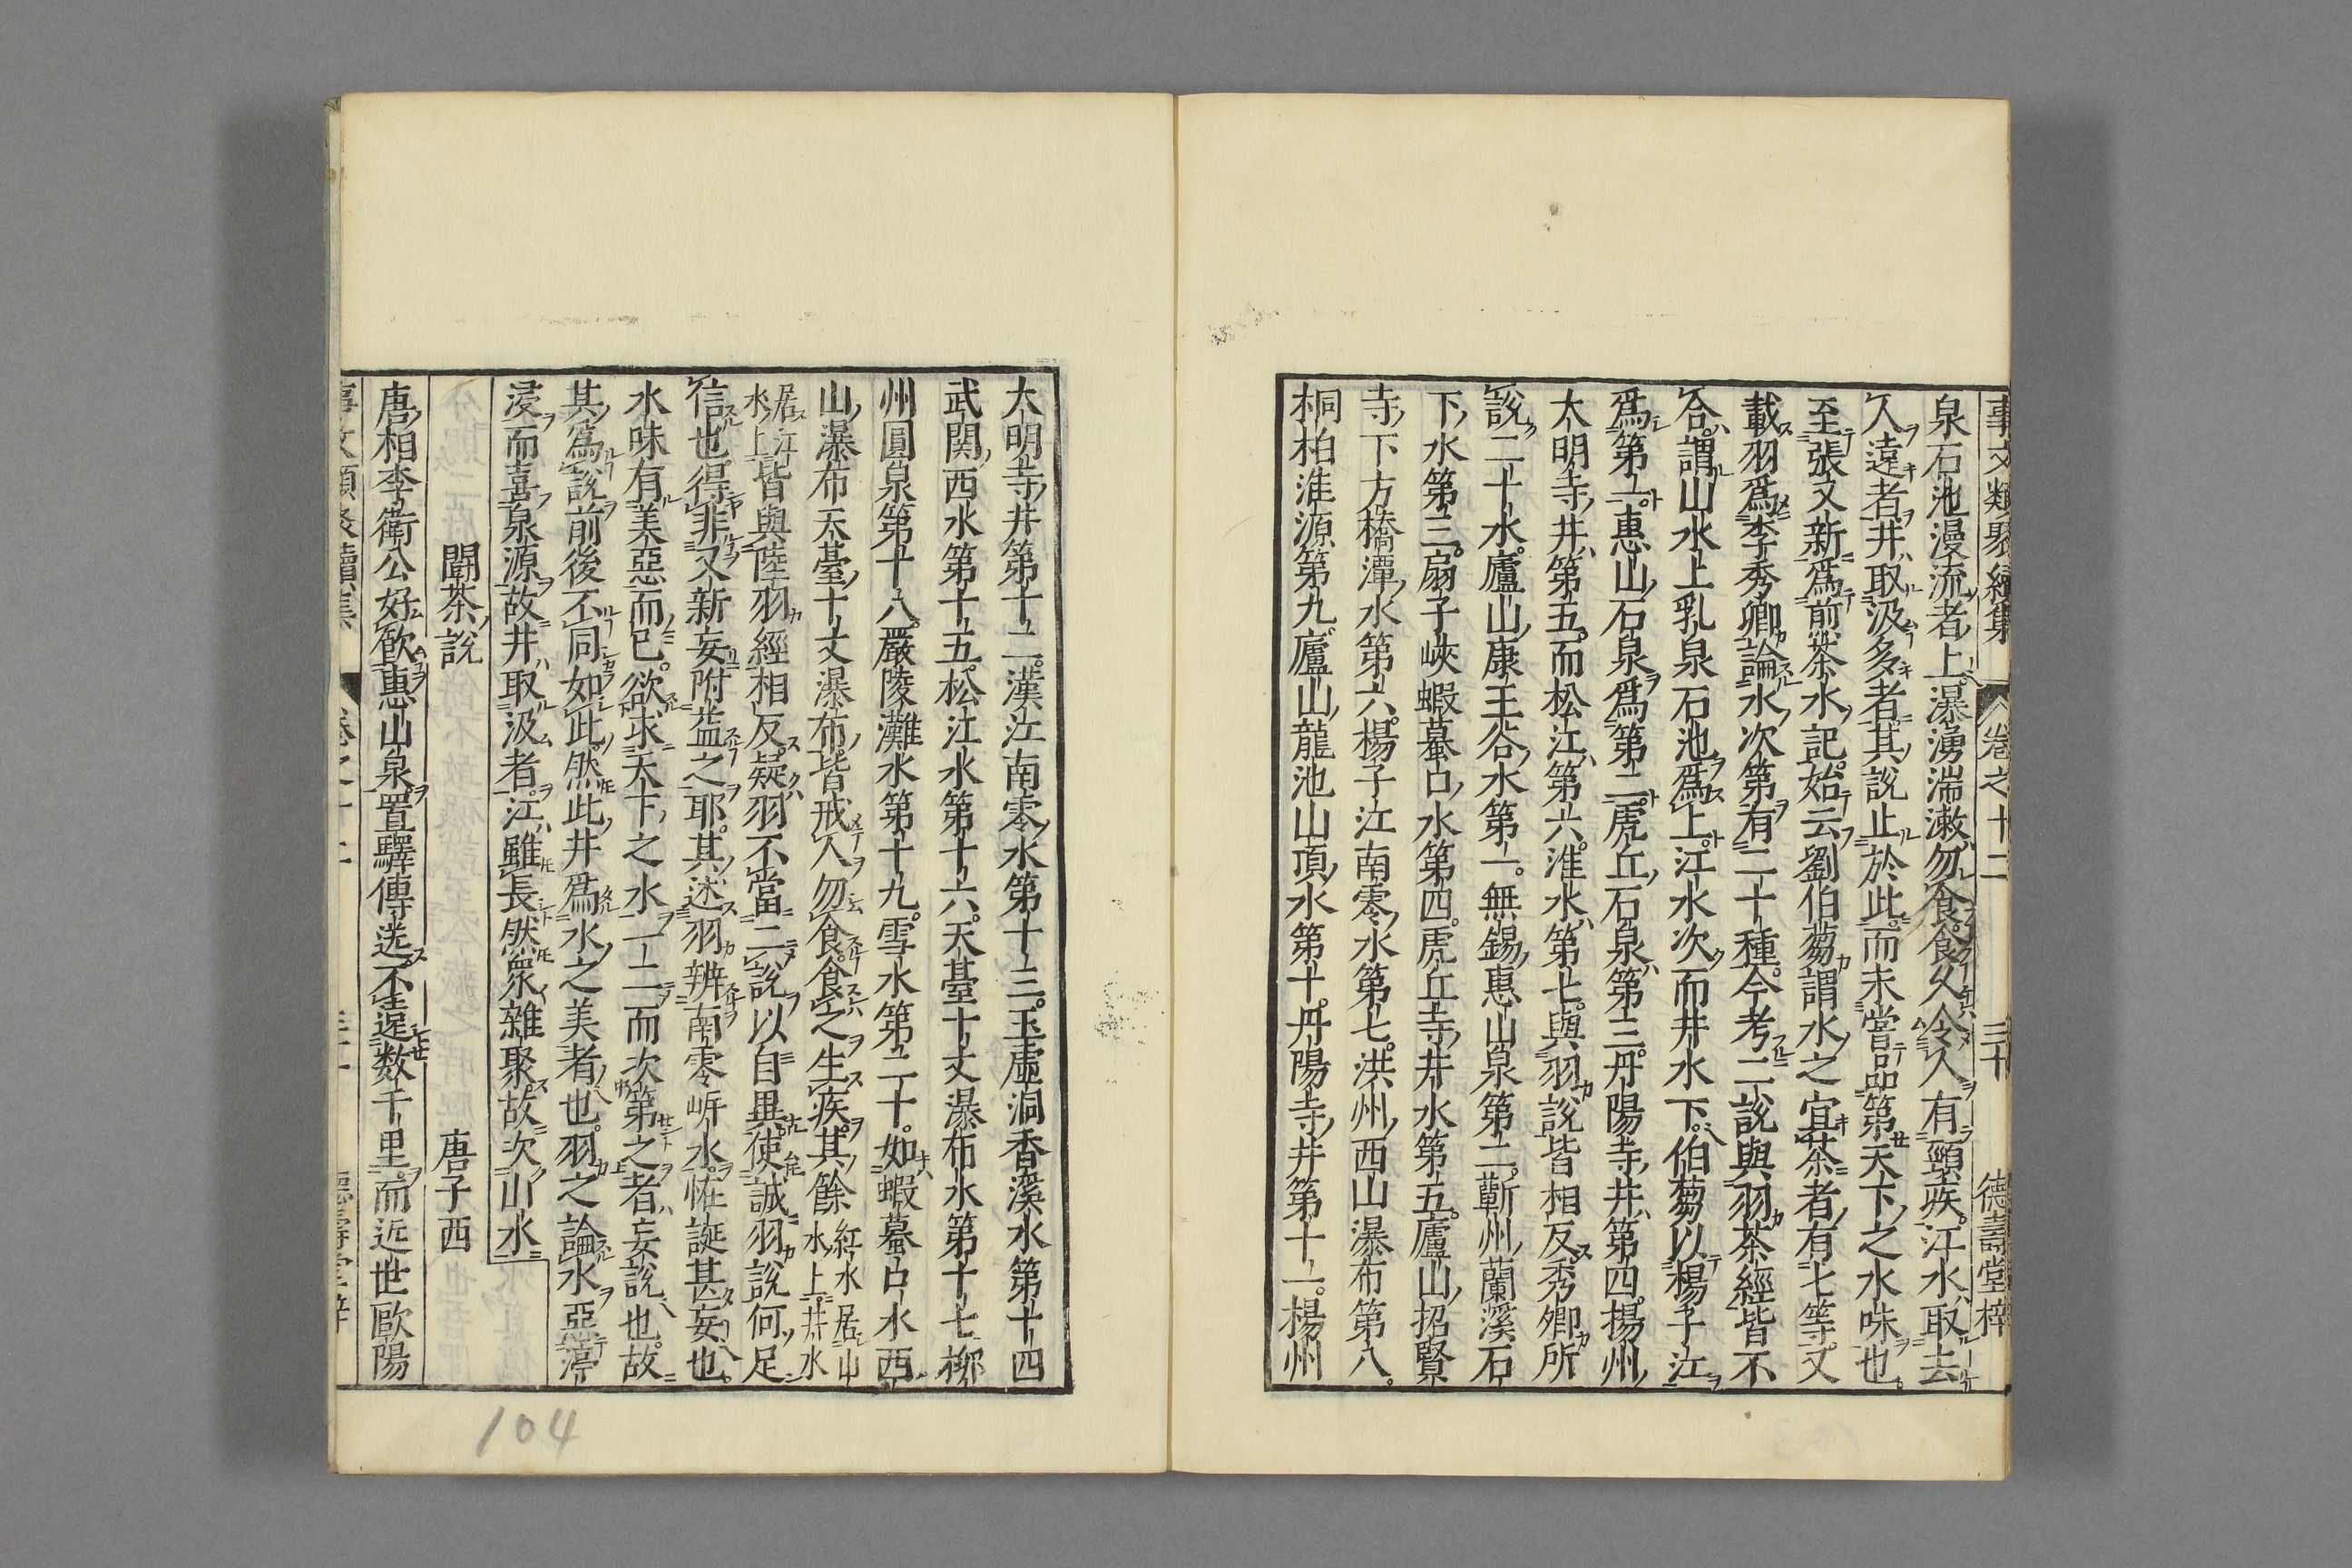 事文類聚續集 卷之十二 三十 德壽堂梓
泉石池漫流者上瀑湧湍漱勿食食久令人有頸疾江水取去
人遠者井取汲多者其說止於此而未嘗品第天下之水味也
至張又新爲煎茶水記始云劉伯蒭謂水之宜茶者有七等又
載羽爲李秀卿論水次第有二十種今考二說與羽茶經皆不
合謂山水上乳泉石池爲上江水次而井水下伯蒭以楊子江
爲第一惠山石泉爲第二虎丘石泉第三丹陽寺井第四揚州
大明寺井第五而松江第六淮水第七與羽說皆相反秀卿所
說二十水廬山康王谷水第一無錫惠山泉第二蘄州蘭溪石
下水第三扇子峽蝦蟇口水第四虎丘寺井水第五廬山招賢
寺下方橋潭水第六楊子江南零水第七洪州西山瀑布第八
桐柏淮源第九廬山龍池山頂水第十丹陽寺井第十一楊州
大明寺井第十二漢江南零水第十三玉虛洞香溪水第十四
武関西水第十五松江水第十六天臺十丈瀑布水第十七郴
州圓泉第十八嚴陵灘水第十九雪水第二十如蝦蟇口水西
山瀑布天臺十丈瀑布皆戒人勿食食之生疾其餘紅水居山水上井水
居江水上皆與陸羽經相反疑羽不當二說以自異使誠羽說何足
信也得非又新妄附益之耶其述羽辨南零岍水恠誕甚妄也
水味有美惡而已欲求天下之水一二而次第之者妄說也故
其爲說前後不同如此然此井爲水之美者也羽之論水惡渟
浸而喜泉源故井取汲者江雖長然衆雜聚故次山水
鬪茶說 唐子西
唐相李衛公好飲惠山泉置驛傳送不遠數千里而近世歐陽
事文類聚續集 卷之十二 三十一 德壽堂梓
104